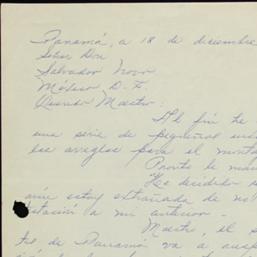 Panamá, a 18 de diciembre
Señor Don
Salvador Novo
México D. F.
Querido Maestro:
Al fin te
una serie de pequeños
los arreglos para el
Pronto le
He decidido
aún estoy extrañada de no
testación a mi anterior -
Maestro, el
tro de Panamá va a